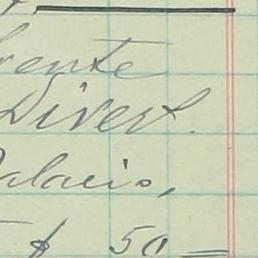 ente
Divert.
alacio,
$ 50 =